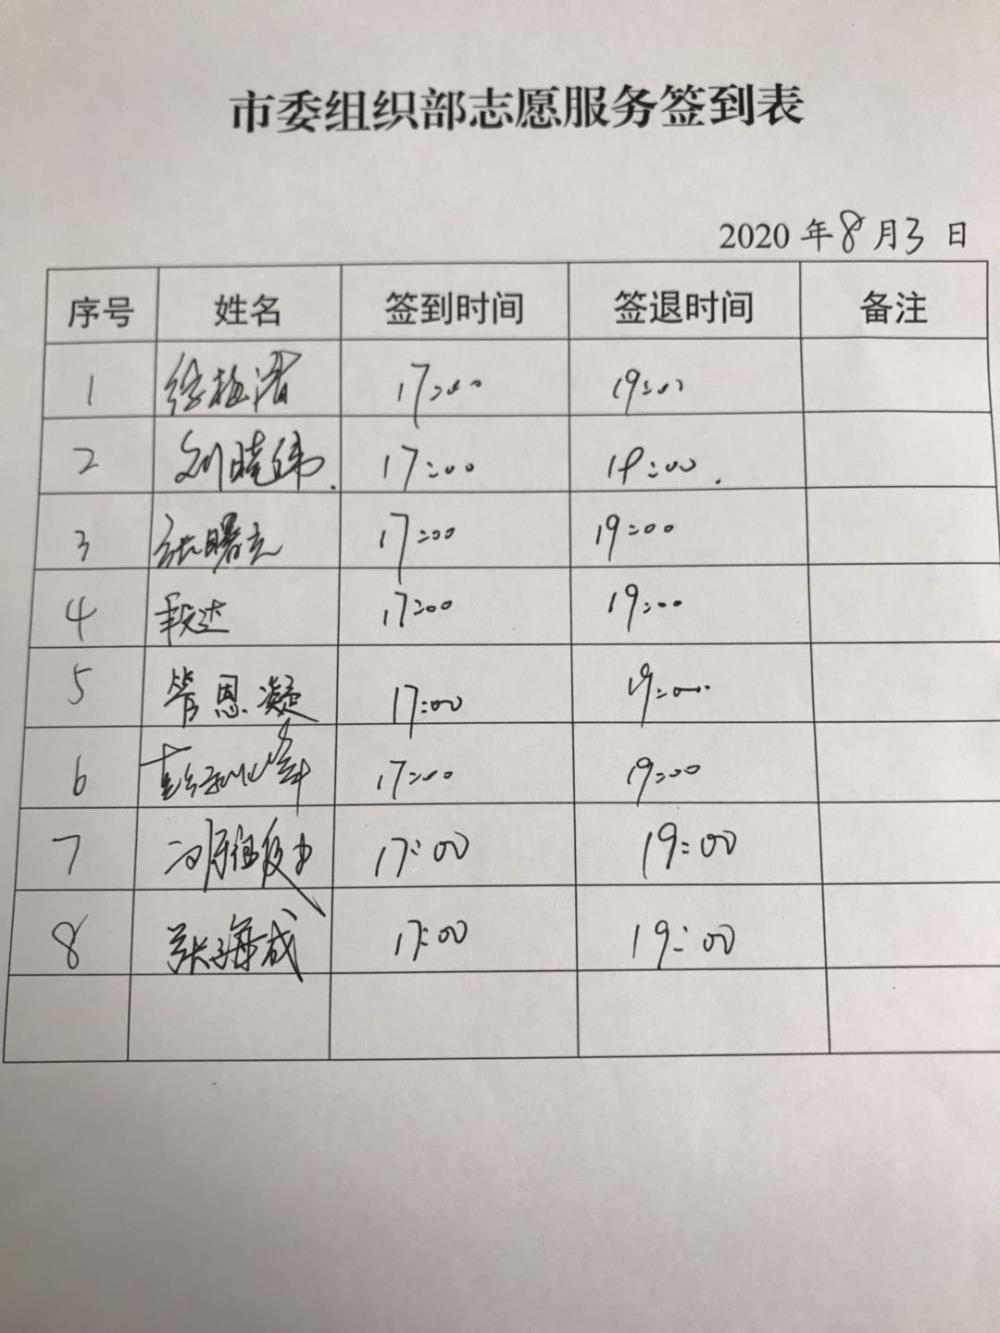 市委组织部志愿服务签到表
2020 年 8 月 3 日
序号 姓名 签到时间 签退时间 备注
1 17:00 19:00
2 刘晓伟. 17:00 19:00.
3 张曙 17:00 19:00
4 段达 17:00 19:00
5 管恩凝 17:00 19:00
6 17:00 19:00
7 17:00 19:00
8 张海成 17:00 19:00